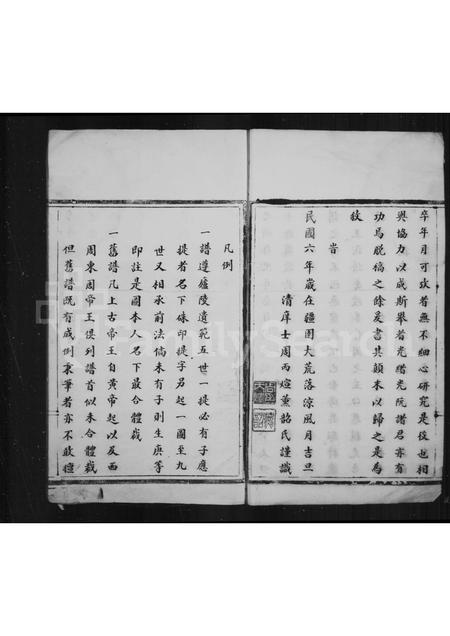 卒年月可攷者無不細心研究是役也相
與協力以成斯舉者光緒光阮諸君亦有
功焉脱稿之餘爰書其顛末以歸之是為
敘
旹
民國六年歲在疆圉大荒落涼風月吉旦
清庠士周丙煊薰韶氏謹識
凡例
一譜遵廬陵遺範五世一提必有子應
提者名下硃印提字另起一圖至九
世又相承前法倘未有子則生庚等
即註是圖本人名下最合體裁
一舊譜凡上古帝王自黃帝起以及西
周東周帝王俱列譜首似未合體裁
但舊譜既有成例秉筆者亦不敢擅
FamilySearch